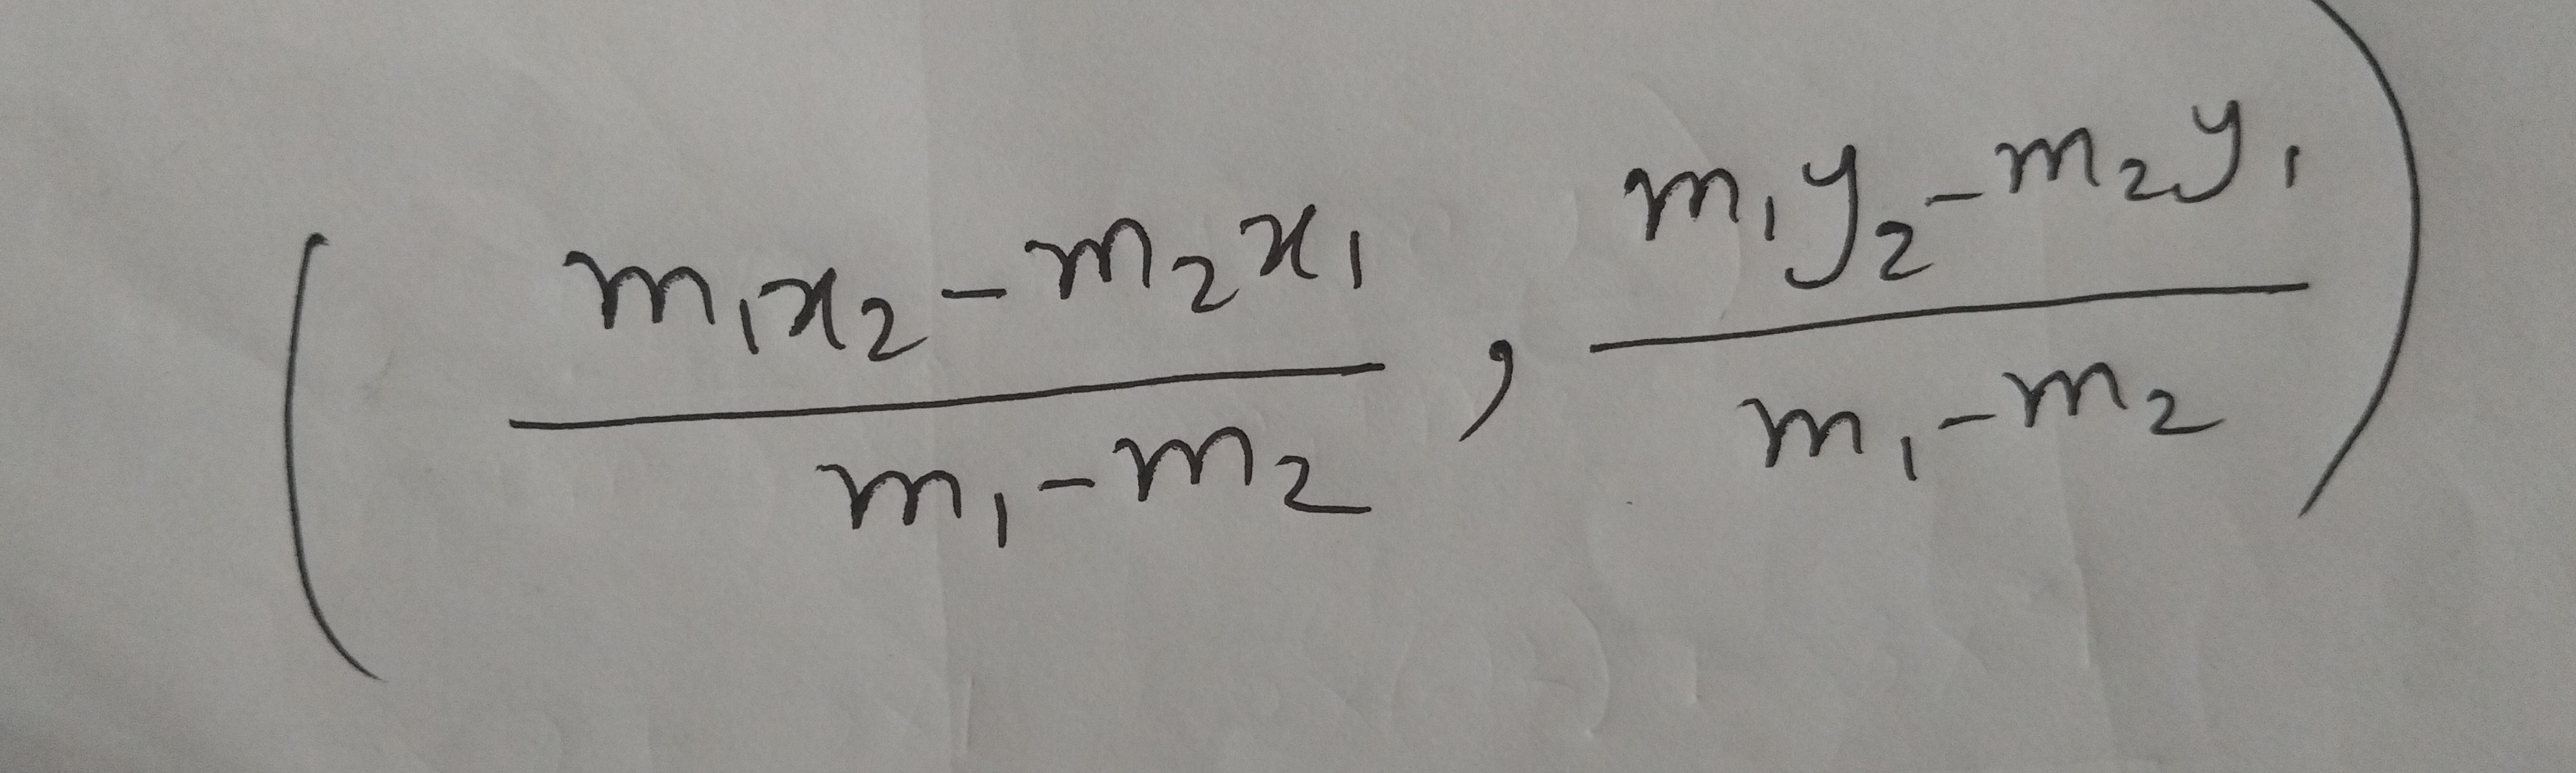 ( m₁x₂ - m₂x₁ / m₁ - m₂ , m₁y₂ - m₂y₁ / m₁ - m₂ )